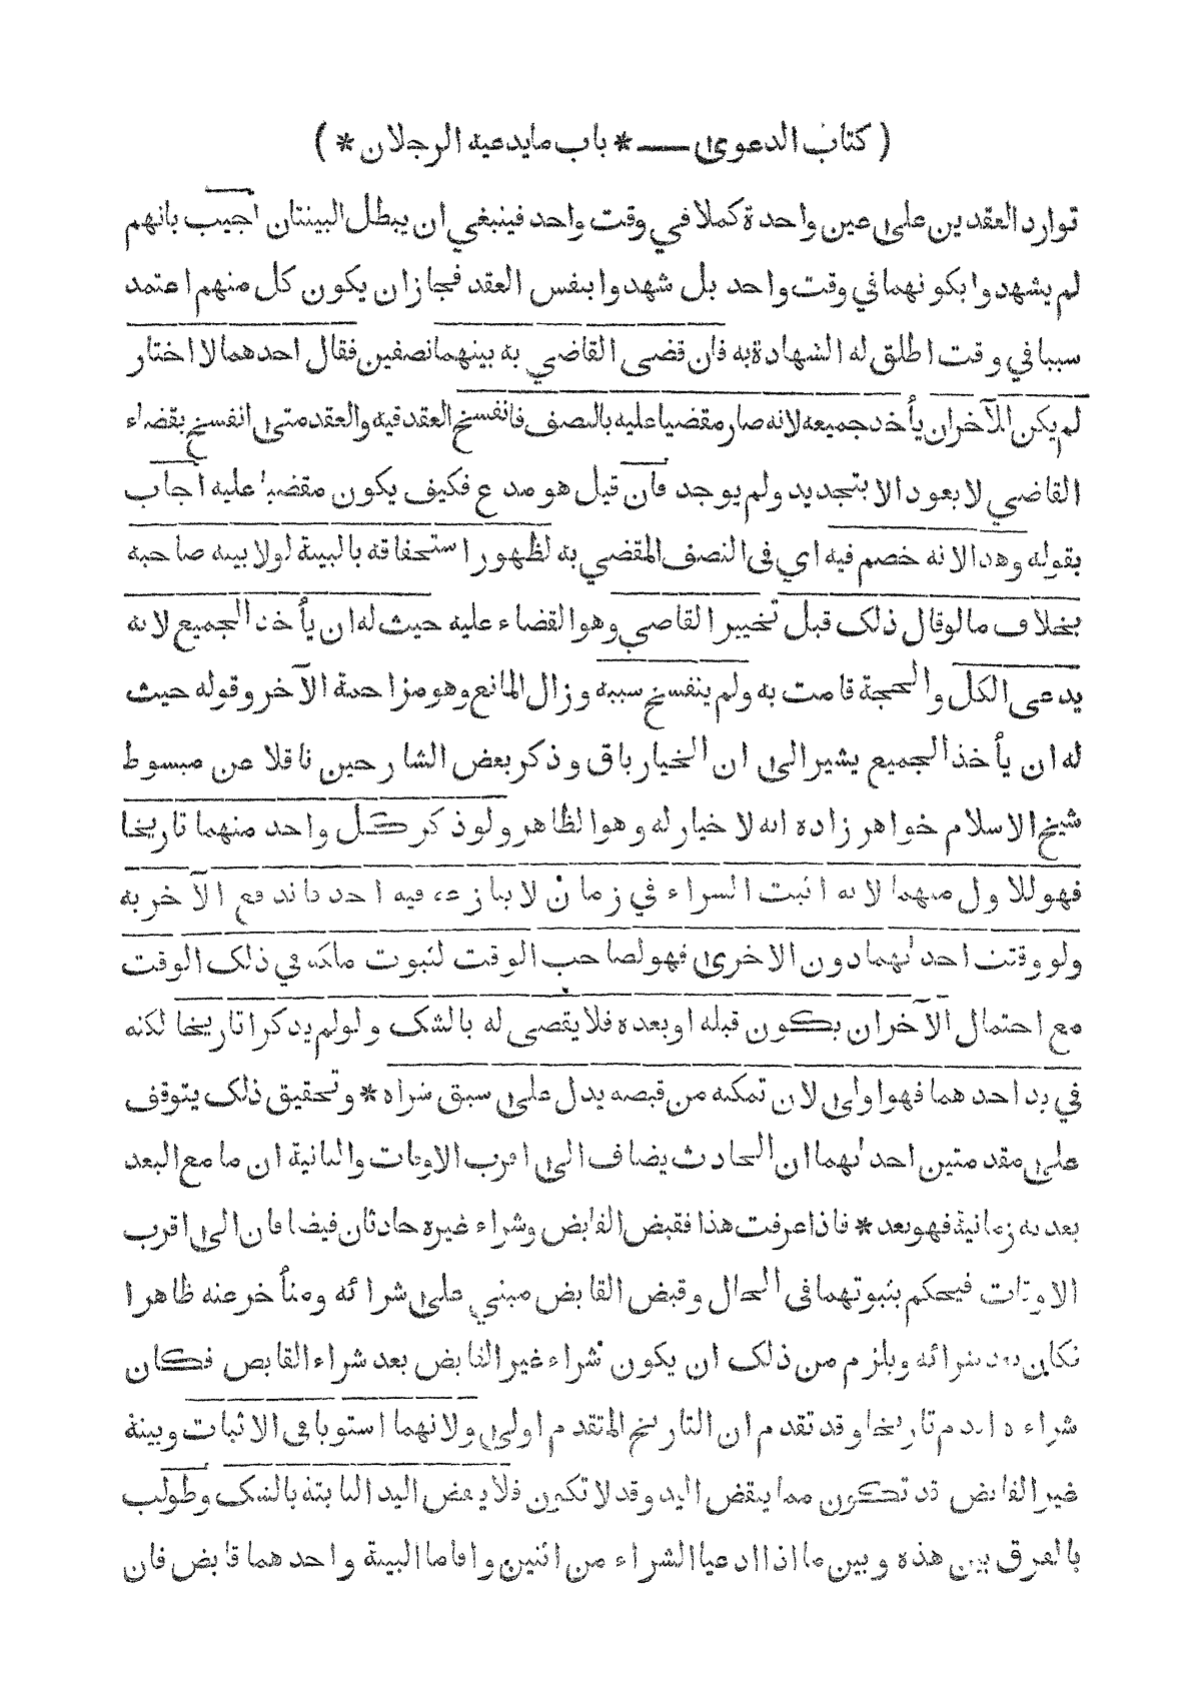 ( كتاب الدعوى — * باب مايدعيه الرجلان * )
توارد العقدين على عين واحدة كملا في وقت واحد فينبغي ان يبطل البينتان اجيب بانهم
لم يشهدوا بكونهما في وقت واحد بل شهدوا بنفس العقد فجاز ان يكون كل منهم اعتمد
سببا في وقت اطلق له الشهادة به فان قضى القاضي به بينهما نصفين فقال احدهما لا اختار
لم يكن للآخر ان يأخذ جميعه لانه صار مقضيا عليه بالنصف فانفسخ العقد فيه والعقد متى انفسخ بقضاء
القاضي لا يعود الا بتجديد ولم يوجد فان قيل هو مدع فكيف يكون مقضيا عليه اجاب
بقوله وهذا لانه خصم فيه اي في النصف المقضي به لظهور استحقاقه بالبينة لولا بينة صاحبه
بخلاف ما لو قال ذلك قبل تخيير القاضي وهو القضاء عليه حيث له ان يأخذ الجميع لانه
يدعى الكل والحجة قامت به ولم ينفسخ سببه وزال المانع وهو مزاحمة الآخر وقوله حيث
له ان يأخذ الجميع يشير الى ان الخيار باق وذكر بعض الشارحين ناقلا عن مبسوط
شيخ الاسلام خواهر زاده انه لا خيار له وهو الظاهر ولو ذكر كل واحد منهما تاريخا
فهو للاول منهما لانه اثبت الشراء في زمان لا ينازعه فيه احد فاندفع الآخر به
ولو وقتت احدٰهما دون الاخرى فهو لصاحب الوقت لثبوت ملكه في ذلك الوقت
مع احتمال الآخر ان يكون قبله او بعده فلا يقضى له بالشك ولو لم يذكرا تاريخا لكنه
في يد احدهما فهو اولى لان تمكنه من قبضه يدل على سبق شراه * وتحقيق ذلك يتوقف
على مقدمتين احدٰهما ان الحادث يضاف الى اقرب الاوقات والثانية ان ما مع البعد
بعديه زمانية فهو بعد * فاذا عرفت هذا فقبض القابض وشراء غيره حادثان فيضافان الى اقرب
الاوقات فيحكم بثبوتهما في الحال وقبض القابض مبني على شرائه ومتأخر عنه ظاهرا
فكان بعد شرائه ويلزم من ذلك ان يكون شراء غير القابض بعد شراء القابض فكان
شراءه اقدم تاريخا وقد تقدم ان التاريخ المتقدم اولى ولانهما استويا في الاثبات وبينة
غير القابض قد تكون مما ينقض اليد وقد لا تكون فلا ينقض اليد الثابتة بالشك وطولب
بالفرق بين هذه وبين ما اذا ادعيا الشراء من اثنين واقاما البينة واحدهما قابض فان